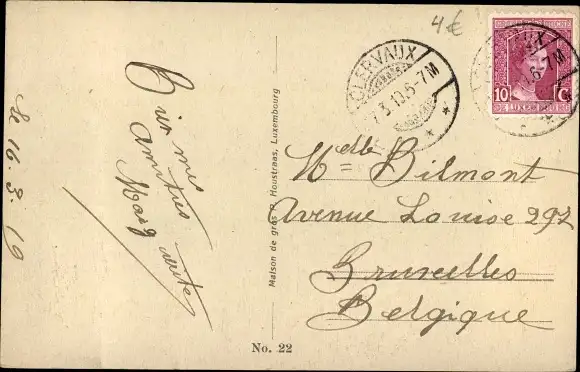 4 €
CLERVAUX
10 C
LUXEMBOURG
Le 16. 3. 19
Bien mes
amitiés
Marguerite
Maison de gros P. Houstraas, Luxembourg
Melle Bilmont
Avenue Louise 292
Bruxelles
Belgique
No. 22